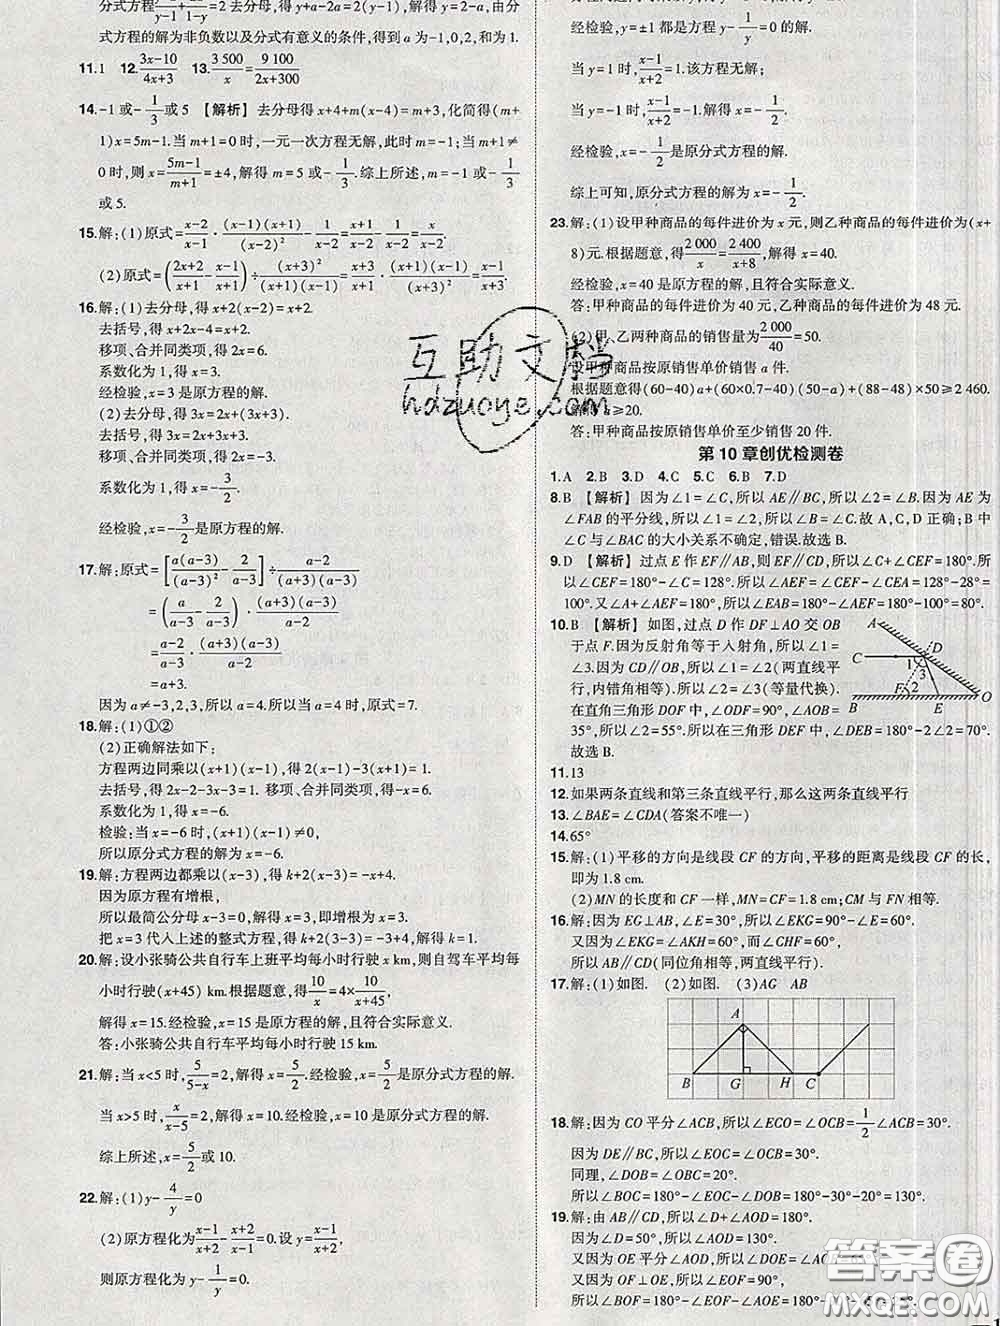 分式方程 +1/(1-y)=2去分母,得 y+a-2a=2(y-1),解得 y=2-a,由分
式方程的解为非负数以及分式有意义的条件,得到 a 为-1,0,2,和为 1.
11.1 12.(3x-10)/(4x+3) 13.3 500/x=9 100/(2x+300)
14.-1 或-1/3或5 【解析】去分母得 x+4+m(x-4)=m+3,化简得(m+
1)x=5m-1.当 m+1=0 时,一元一次方程无解,此时 m=-1;当 m+1≠
0 时,则 x=(5m-1)/(m+1)=±4,解得 m=5 或-1/3.综上所述,m=-1 或-1/3
或 5.
15.解:(1)原式=(x-2)/(x-1)·(x-1)(x+1)/(x-2)²-1/(x-2)=(x+1)/(x-2)-1/(x-2)=x/(x-2).
(2)原式=((2x+2)/(x+1)-(x-1)/(x+1))÷(x+3)²/((x+1)(x-1))=(x+3)/(x+1)·(x+1)(x-1)/(x+3)²=(x-1)/(x+3).
16.解:(1)去分母,得 x+2(x-2)=x+2.
去括号,得 x+2x-4=x+2.
移项、合并同类项,得 2x=6.
系数化为 1,得 x=3.
经检验,x=3 是原方程的解.
(2)去分母,得 x(x+3)=6+(x+3)(x-3).
去括号,得 x²+3x=6+x²-9.
移项、合并同类项,得 3x=-3.
系数化为 1,得 x=-3/2.
经检验,x=-3/2是原方程的解.
17.解:原式=[a(a-3)/(a-3)²-2/(a-3)]÷(a-2)/((a+3)(a-3))
=(a/(a-3)-2/(a-3))·(a+3)(a-3)/(a-2)
=(a-2)/(a-3)·(a+3)(a-3)/(a-2)
=a+3.
因为 a≠-3,2,3,所以 a=4.所以当 a=4 时,原式=7.
18.解:(1)①②
(2)正确解法如下:
方程两边同乘以(x+1)(x-1),得 2(x-1)-3(x+1)=1.
去括号,得 2x-2-3x-3=1 移项、合并同类项,得-x=6.
系数化为 1,得 x=-6.
检验:当 x=-6 时,(x+1)(x-1)≠0,
所以原分式方程的解为 x=-6.
19.解:方程两边都乘以(x-3),得 k+2(x-3)=-x+4.
因为原方程有增根,
所以最简公分母 x-3=0,解得 x=3,即增根为 x=3.
把 x=3 代入上述的整式方程,得 k+2(3-3)=-3+4,解得 k=1.
20.解:设小张骑公共自行车上班平均每小时行驶 x km,则自驾车平均每
小时行驶(x+45) km.根据题意,得10/x=4×10/(x+45),
解得 x=15.经检验,x=15 是原方程的解,且符合实际意义.
答:小张骑公共自行车平均每小时行驶 15 km.
21.解:当 x<5 时,5/(5-x)=2,解得 x=5/2.经检验,x=5/2是原分式方程的解.
当 x>5 时,x/(x-5)=2,解得 x=10.经检验,x=10 是原分式方程的解.
综上所述,x=5/2或 10.
22.解:(1)y-4/y=0
(2)原方程化为(x-1)/(x+2)-(x+2)/(x-1)=0.设 y=(x-1)/(x+2),
则原方程化为 y-1/y=0.
经检验,y=±1 都是方程 y-1/y=0 的解.
当 y=1 时,(x-1)/(x+2)=1.该方程无解;
当 y=-1 时,(x-1)/(x+2)=-1.解得 x=-1/2.
经检验,x=-1/2是原分式方程的解.
综上可知,原分式方程的解为 x=-1/2.
23.解:(1)设甲种商品的每件进价为 x 元,则乙种商品的每件进价为(x+
8)元.根据题意,得2 000/x=2 400/(x+8),解得 x=40.
经检验,x=40 是原方程的解,且符合实际意义.
答:甲种商品的每件进价为 40 元,乙种商品的每件进价为 48 元.
(2)甲、乙两种商品的销售量为2 000/40=50.
设甲种商品按原销售单价销售 a 件.
根据题意得(60-40)a+(60×0.7-40)(50-a)+(88-48)×50≥2 460.
解得 a≥20.
答:甲种商品按原销售单价至少销售 20 件.
第 10 章创优检测卷
1.A 2.B 3.D 4.C 5.C 6.B 7.D
8.B 【解析】因为∠1=∠C,所以 AE∥BC,所以∠2=∠B.因为 AE 为
∠FAB 的平分线,所以∠1=∠2,所以∠B=∠C.故 A,C,D 正确;B 中
∠C 与∠BAC 的大小关系不确定,错误.故选 B.
9.D 【解析】过点 E 作 EF∥AB,则 EF∥CD,所以∠C+∠CEF=180°.所
以∠CEF=180°-∠C=128°.所以∠AEF=∠CEF-∠CEA=128°-28°=
100°.又∠A+∠AEF=180°,所以∠EAB=180°-∠AEF=180°-100°=80°.
10.B 【解析】如图,过点 D 作 DF⊥AO 交 OB
于点 F.因为反射角等于入射角,所以∠1=
∠3.因为 CD∥OB,所以∠1=∠2(两直线平
行,内错角相等).所以∠2=∠3(等量代换).
在直角三角形 DOF 中,∠ODF=90°,∠AOB=
35°,所以∠2=55°.所以在三角形 DEF 中,∠DEB=180°-2∠2=70°.
故选 B.
A D C 1 3 F 2 B E O
11.13
12.如果两条直线和第三条直线平行,那么这两条直线平行
13.∠BAE=∠CDA(答案不唯一)
14.65°
15.解:(1)平移的方向是线段 CF 的方向,平移的距离是线段 CF 的长,
即为 1.8 cm.
(2)MN 的长度和 CF 一样,MN=CF=1.8 cm;CM 与 FN 相等.
16.解:因为 EG⊥AB,∠E=30°,所以∠EKG=90°-∠E=60°.
又因为∠EKG=∠AKH=60°,而∠CHF=60°,
所以 AB∥CD(同位角相等,两直线平行).
17.解:(1)如图. (2)如图. (3)AG AB
A B G H C
18.解:因为 CO 平分∠ACB,所以∠ECO=∠OCB=1/2∠ACB=30°.
因为 DE∥BC,所以∠EOC=∠OCB=30°.
同理,∠DOB=∠OBC=20°.
所以∠BOC=180°-∠EOC-∠DOB=180°-30°-20°=130°.
19.解:由 AB∥CD,所以∠D+∠AOD=180°.
因为∠D=50°,所以∠AOD=130°.
又因为 OE 平分∠AOD,所以∠DOE=∠AOE=65°.
又因为 OF⊥OE,所以∠EOF=90°,
所以∠BOF=180°-∠EOF-∠AOE=180°
互助文档
hdzuoye.com
答案圈
MXQE.COM